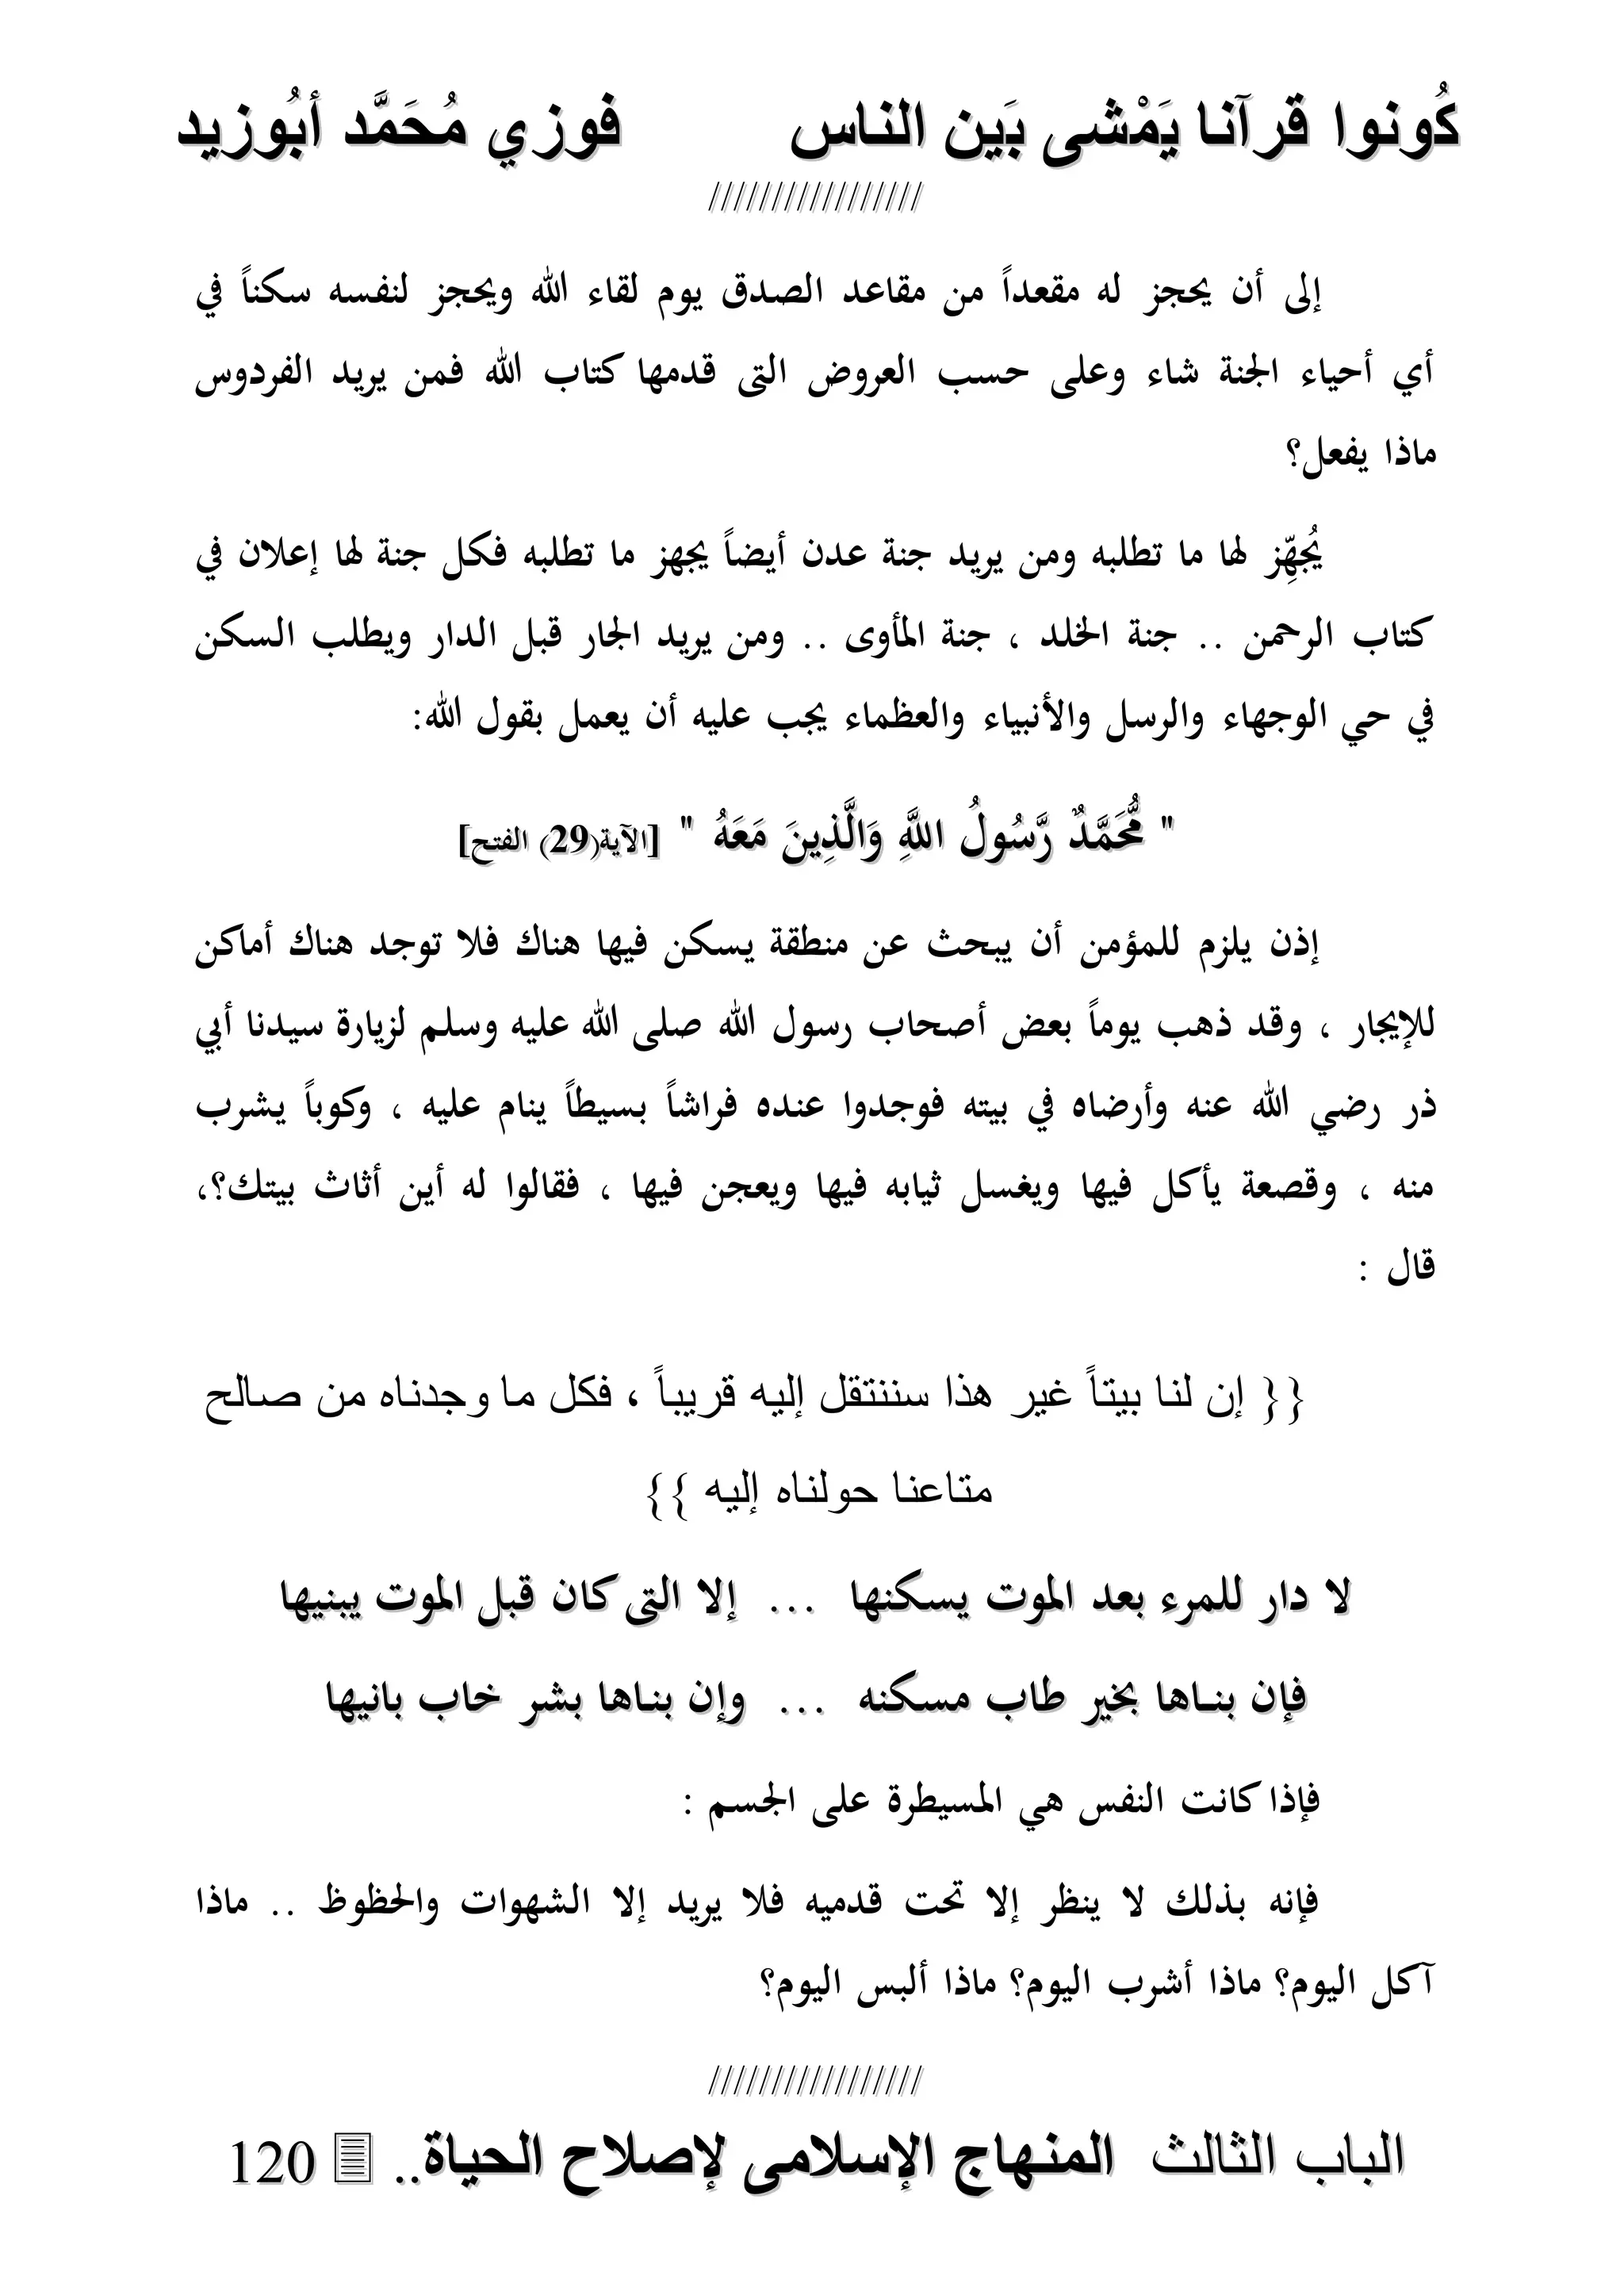 كُونوا قرآنا يَمْشى بَين الناس فوزي مُحَمَّد أبُوزيد
/////////////////
إلى أن يحجز له مقعداً من مقاعد الصدق يوم لقاء الله ويحجز لنفسه سكناً في
أي أحياء الجنة شاء وعلى حسب العروض التى قدمها كتاب الله فمن يريد الفردوس
ماذا يفعل؟
يُجهِّز لها ما تطلبه ومن يريد جنة عدن أيضاً يجهز ما تطلبه فكل جنة لها إعلان في
كتاب الرحمن .. جنة الخلد ، جنة المأوى .. ومن يريد الجار قبل الدار ويطلب السكن
في حي الوجهاء والرسل والأنبياء والعظماء يجب عليه أن يعمل بقول الله:
" مُّحَمَّدٌ رَّسُولُ اللَّهِ وَالَّذِينَ مَعَهُ " [الآية(29) الفتح]
إذن يلزم للمؤمن أن يبحث عن منطقة يسكن فيها هناك فلا توجد هناك أماكن
للإيجار ، وقد ذهب يوماً بعض أصحاب رسول الله صلى الله عليه وسلم لزيارة سيدنا أبي
ذر رضي الله عنه وأرضاه في بيته فوجدوا عنده فراشاً بسيطاً ينام عليه ، وكوباً يشرب
منه ، وقصعة يأكل فيها ويغسل ثيابه فيها ويعجن فيها ، فقالوا له أين أثاث بيتك؟،
قال :
{{ إن لنا بيتاً غير هذا سننتقل إليه قريباً ، فكل ما وجدناه من صالح
متاعنا حولناه إليه }}
لا دار للمرء بعد الموت يسكنها ... إلا التى كان قبل الموت يبنيها
فإن بنـاها بخير طاب مسكنه ... وإن بناها بشر خاب بانيها
فإذا كانت النفس هي المسيطرة على الجسم :
فإنه بذلك لا ينظر إلا تحت قدميه فلا يريد إلا الشهوات والحظوظ .. ماذا
آكل اليوم؟ ماذا أشرب اليوم؟ ماذا ألبس اليوم؟
/////////////////
الباب الثالث المنهاج الإسلامى لإصلاح الحياة.. 120